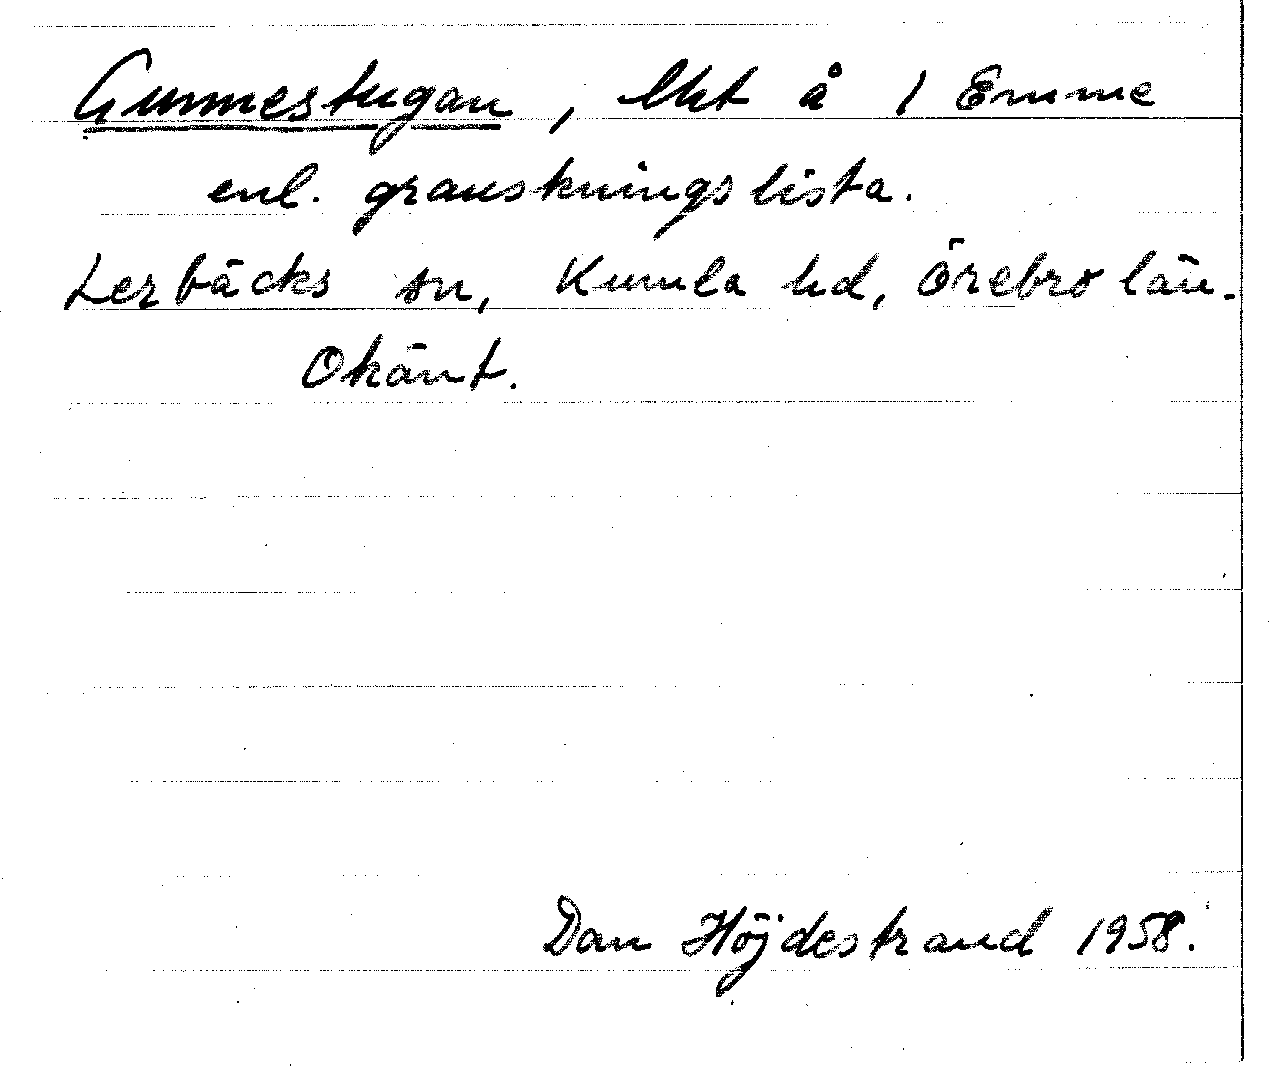 Gunnestugan, lht å 1 Emme
enl. granskningslista.
Lerbäcks sn, Kumla hd, Örebro län.
Okänt.
Dan Höjdestrand 1958.